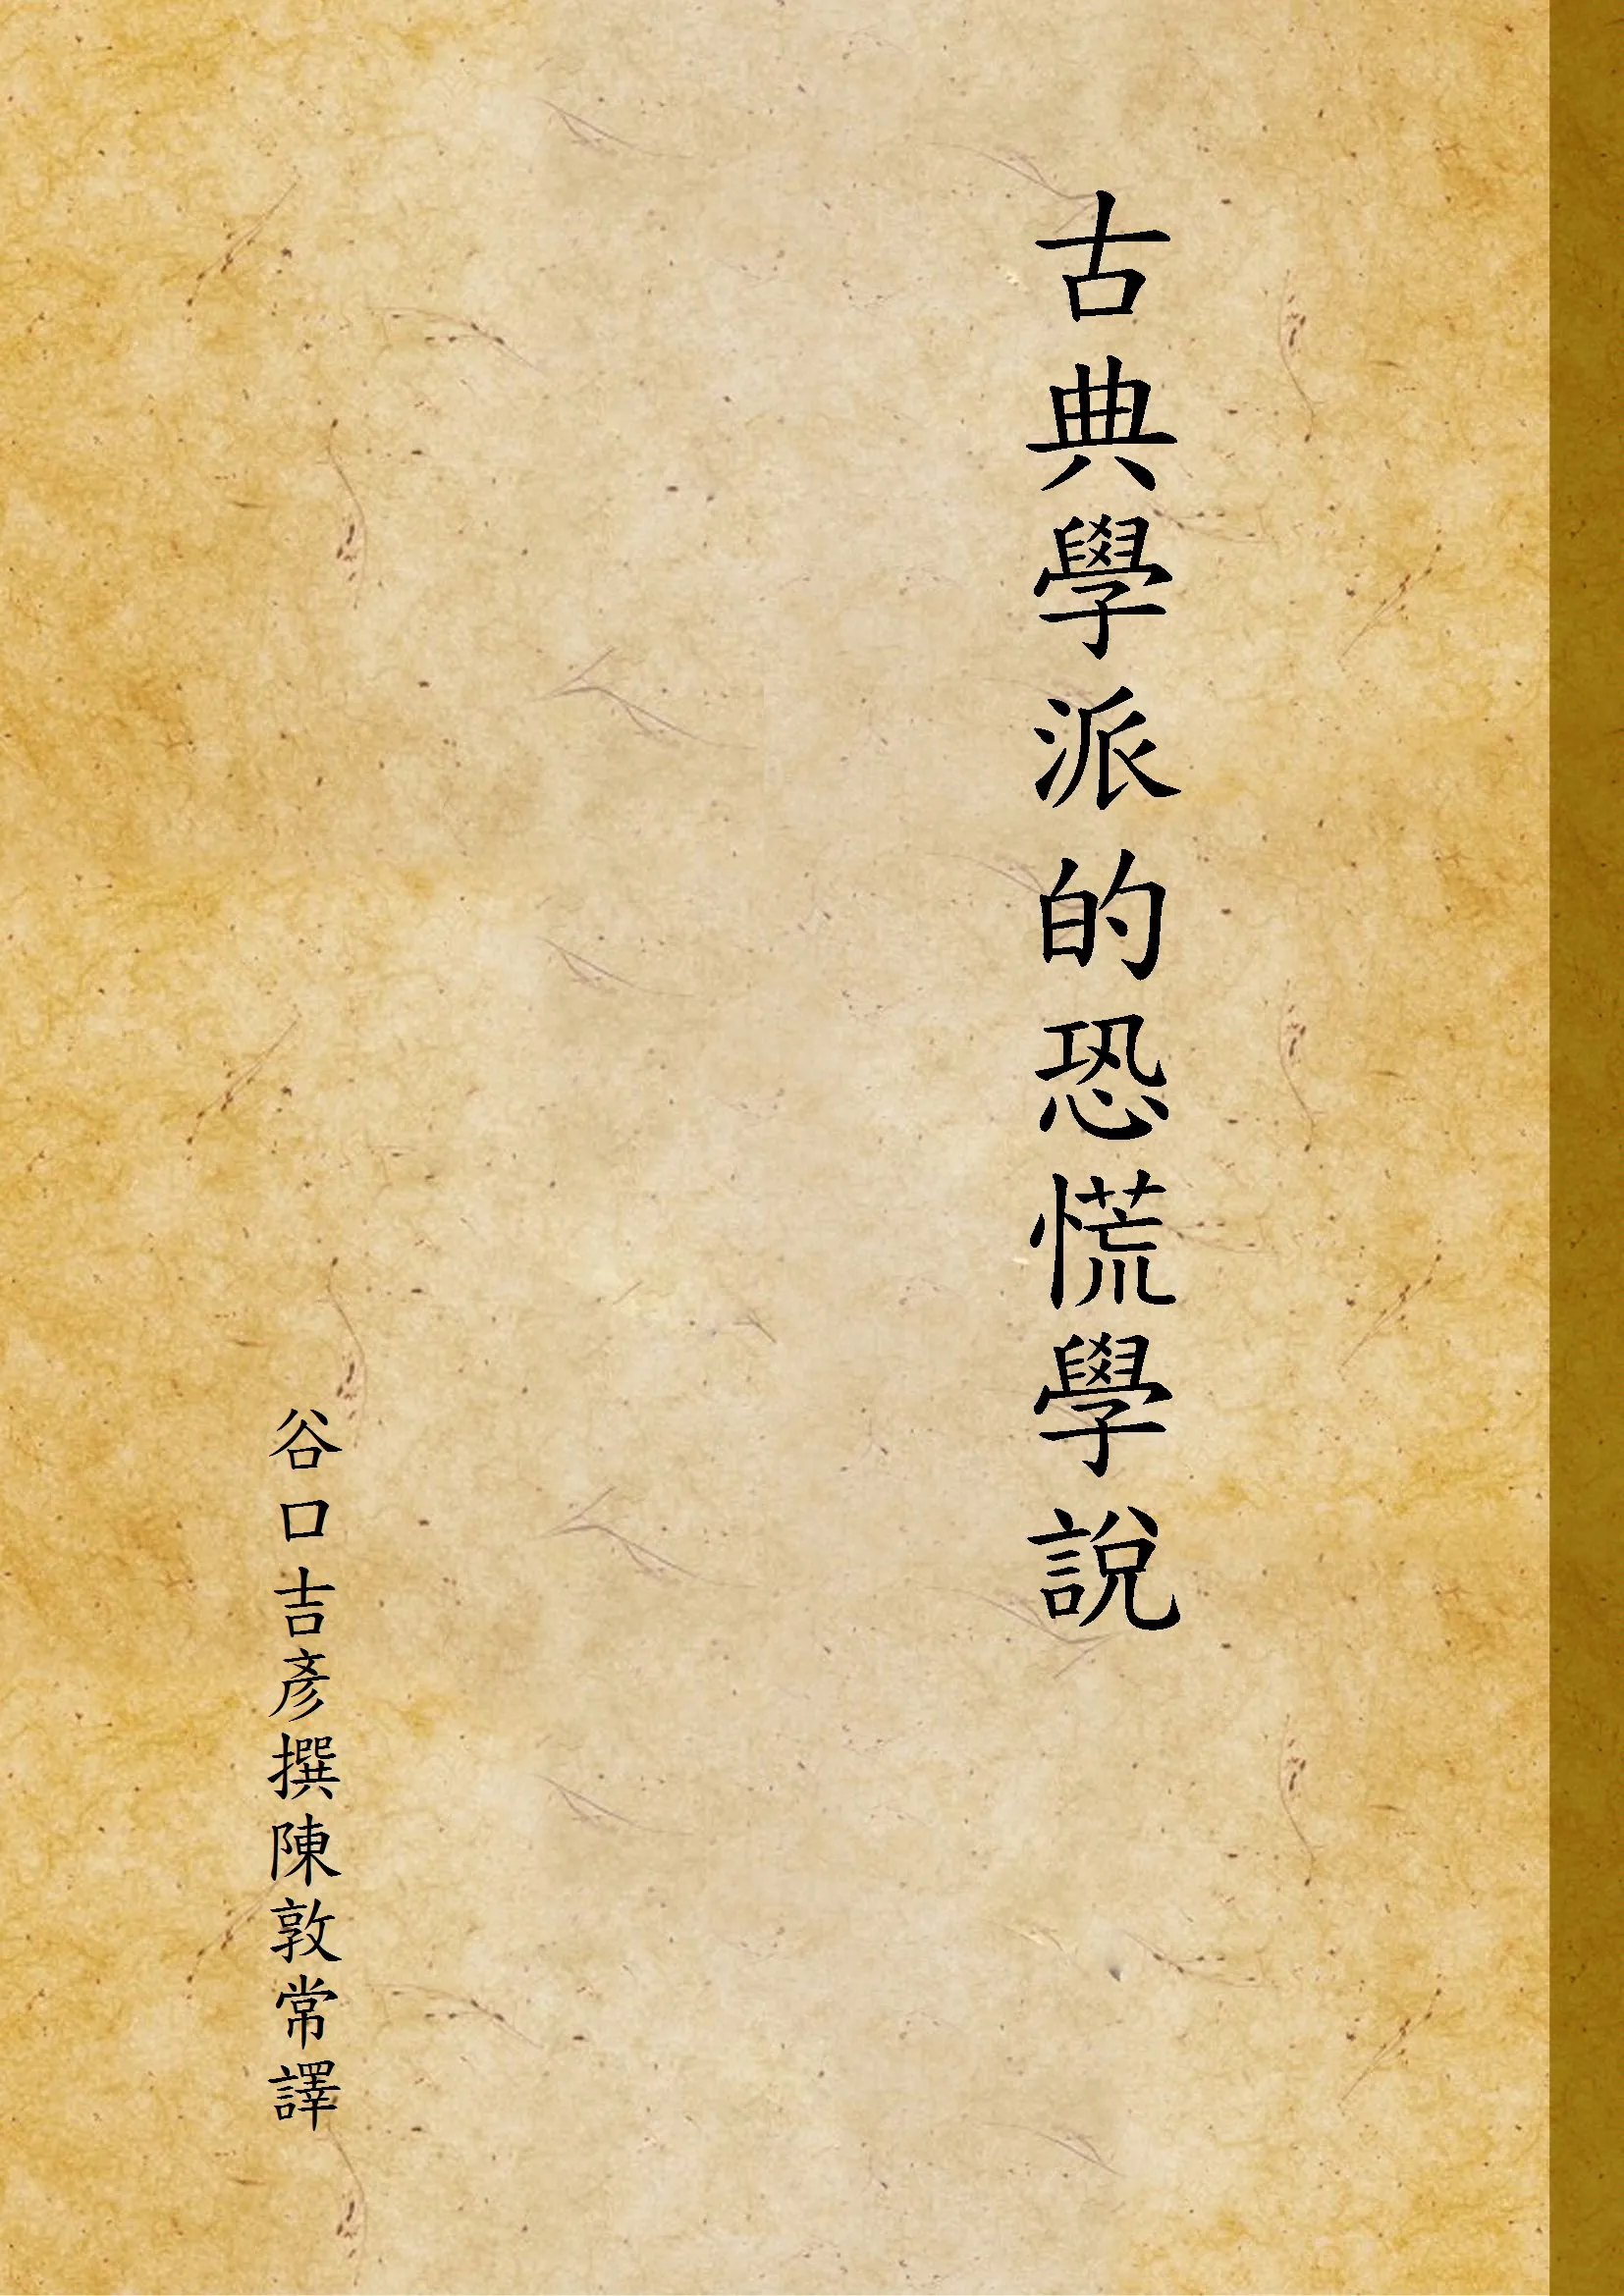 古典學派的恐慌學說
谷口吉彥撰陳敦常譯